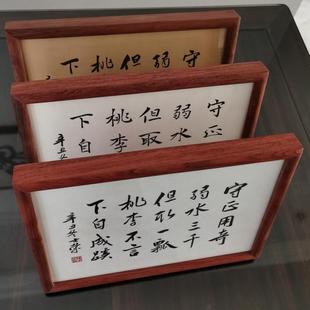 守
弱
但
桃
下
守正
弱水
但取
桃李
下自
辛丑
守正用奇
弱水三千
但取一瓢
桃李不言
下自成蹊
辛丑